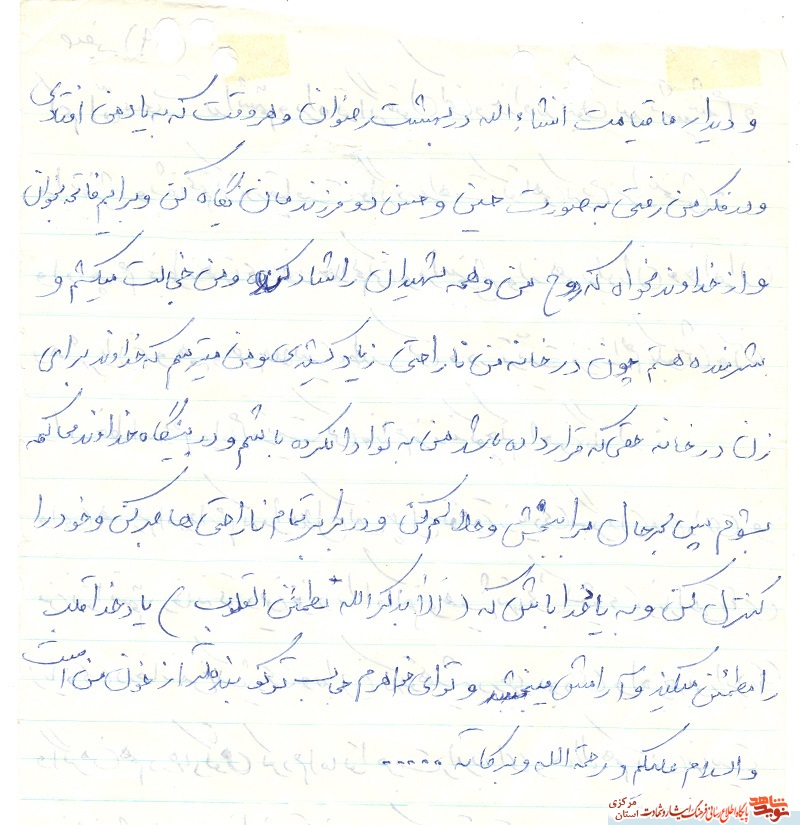 و دیدار ما قیامت انشاءالله در بهشت رضوان و هر وقت که به یاد من افتادی
و در فکر من رفتی به صورت حسین و حسن دو فرزندمان نگاه کن و برایم فاتحه بخوان
و از خداوند بخواه که روح من و همه شهیدان را شاد کند و من خجالت میکشم و
شرمنده هستم چون در خانه من ناراحتی زیاد کشیدی و من میترسم که خداوند برای
زن در خانه حقی که قرار داده باشد من به تو ادا نکرده باشم و در پیشگاه خداوند محاکمه
بشوم پس بهرحال مرا ببخش و حلالم کن و در برابر تمام ناراحتی ها صبر کن و خود را
کنترل کن و به یاد خدا باش که (الا بذکر الله تطمئن القلوب) یاد خدا قلب
را مطمئن میکند و آرامش میبخشد و تو ای خواهرم حجاب تو کوبنده تر از خون من است
والسلام علیکم و رحمة الله و برکاته .....
نوید شاهد
پایگاه اطلاع رسانی فرهنگ ایثار و شهادت
استان مرکزی